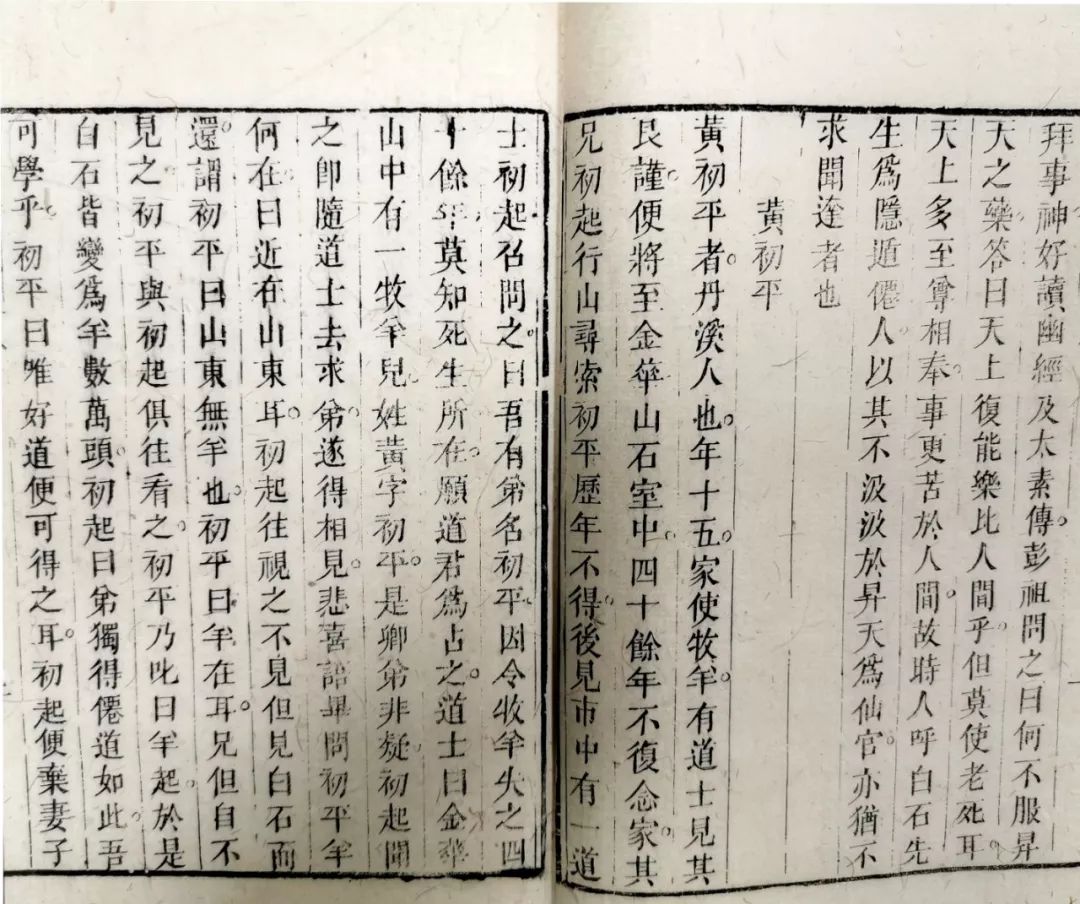 拜事神好讀幽經及太素傳彭祖問之曰何不服昇
天之藥答曰天上復能樂比人間乎但莫使老死耳
天上多至尊相奉事更苦於人間故時人呼白石先
生爲隱遁僊人以其不汲汲於昇天爲仙官亦猶不
求聞達者也
黃初平
黃初平者丹溪人也年十五家使牧羊有道士見其
良謹便將至金華山石室中四十餘年不復念家其
兄初起行山尋索初平歷年不得後見市中有一道
士初起召問之曰吾有弟名初平因令牧羊失之四
十餘年莫知死生所在願道君爲占之道士曰金華
山中有一牧羊兒姓黃字初平是卿弟非疑初起聞
之即隨道士去求弟遂得相見悲喜語畢問初平羊
何在曰近在山東耳初起往視之不見但見白石而
還謂初平曰山東無羊也初平曰羊在耳兄但自不
見之初平與初起俱往看之初平乃叱曰羊起於是
白石皆變爲羊數萬頭初起曰弟獨得僊道如此吾
可學乎初平曰唯好道便可得之耳初起便棄妻子